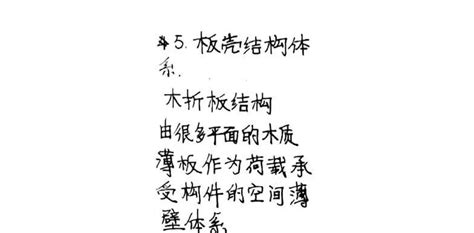 *5. 板壳结构体
系.
木折板结构
由很多平面的木质
薄板作为荷载承
受构件的空间薄
壁体系